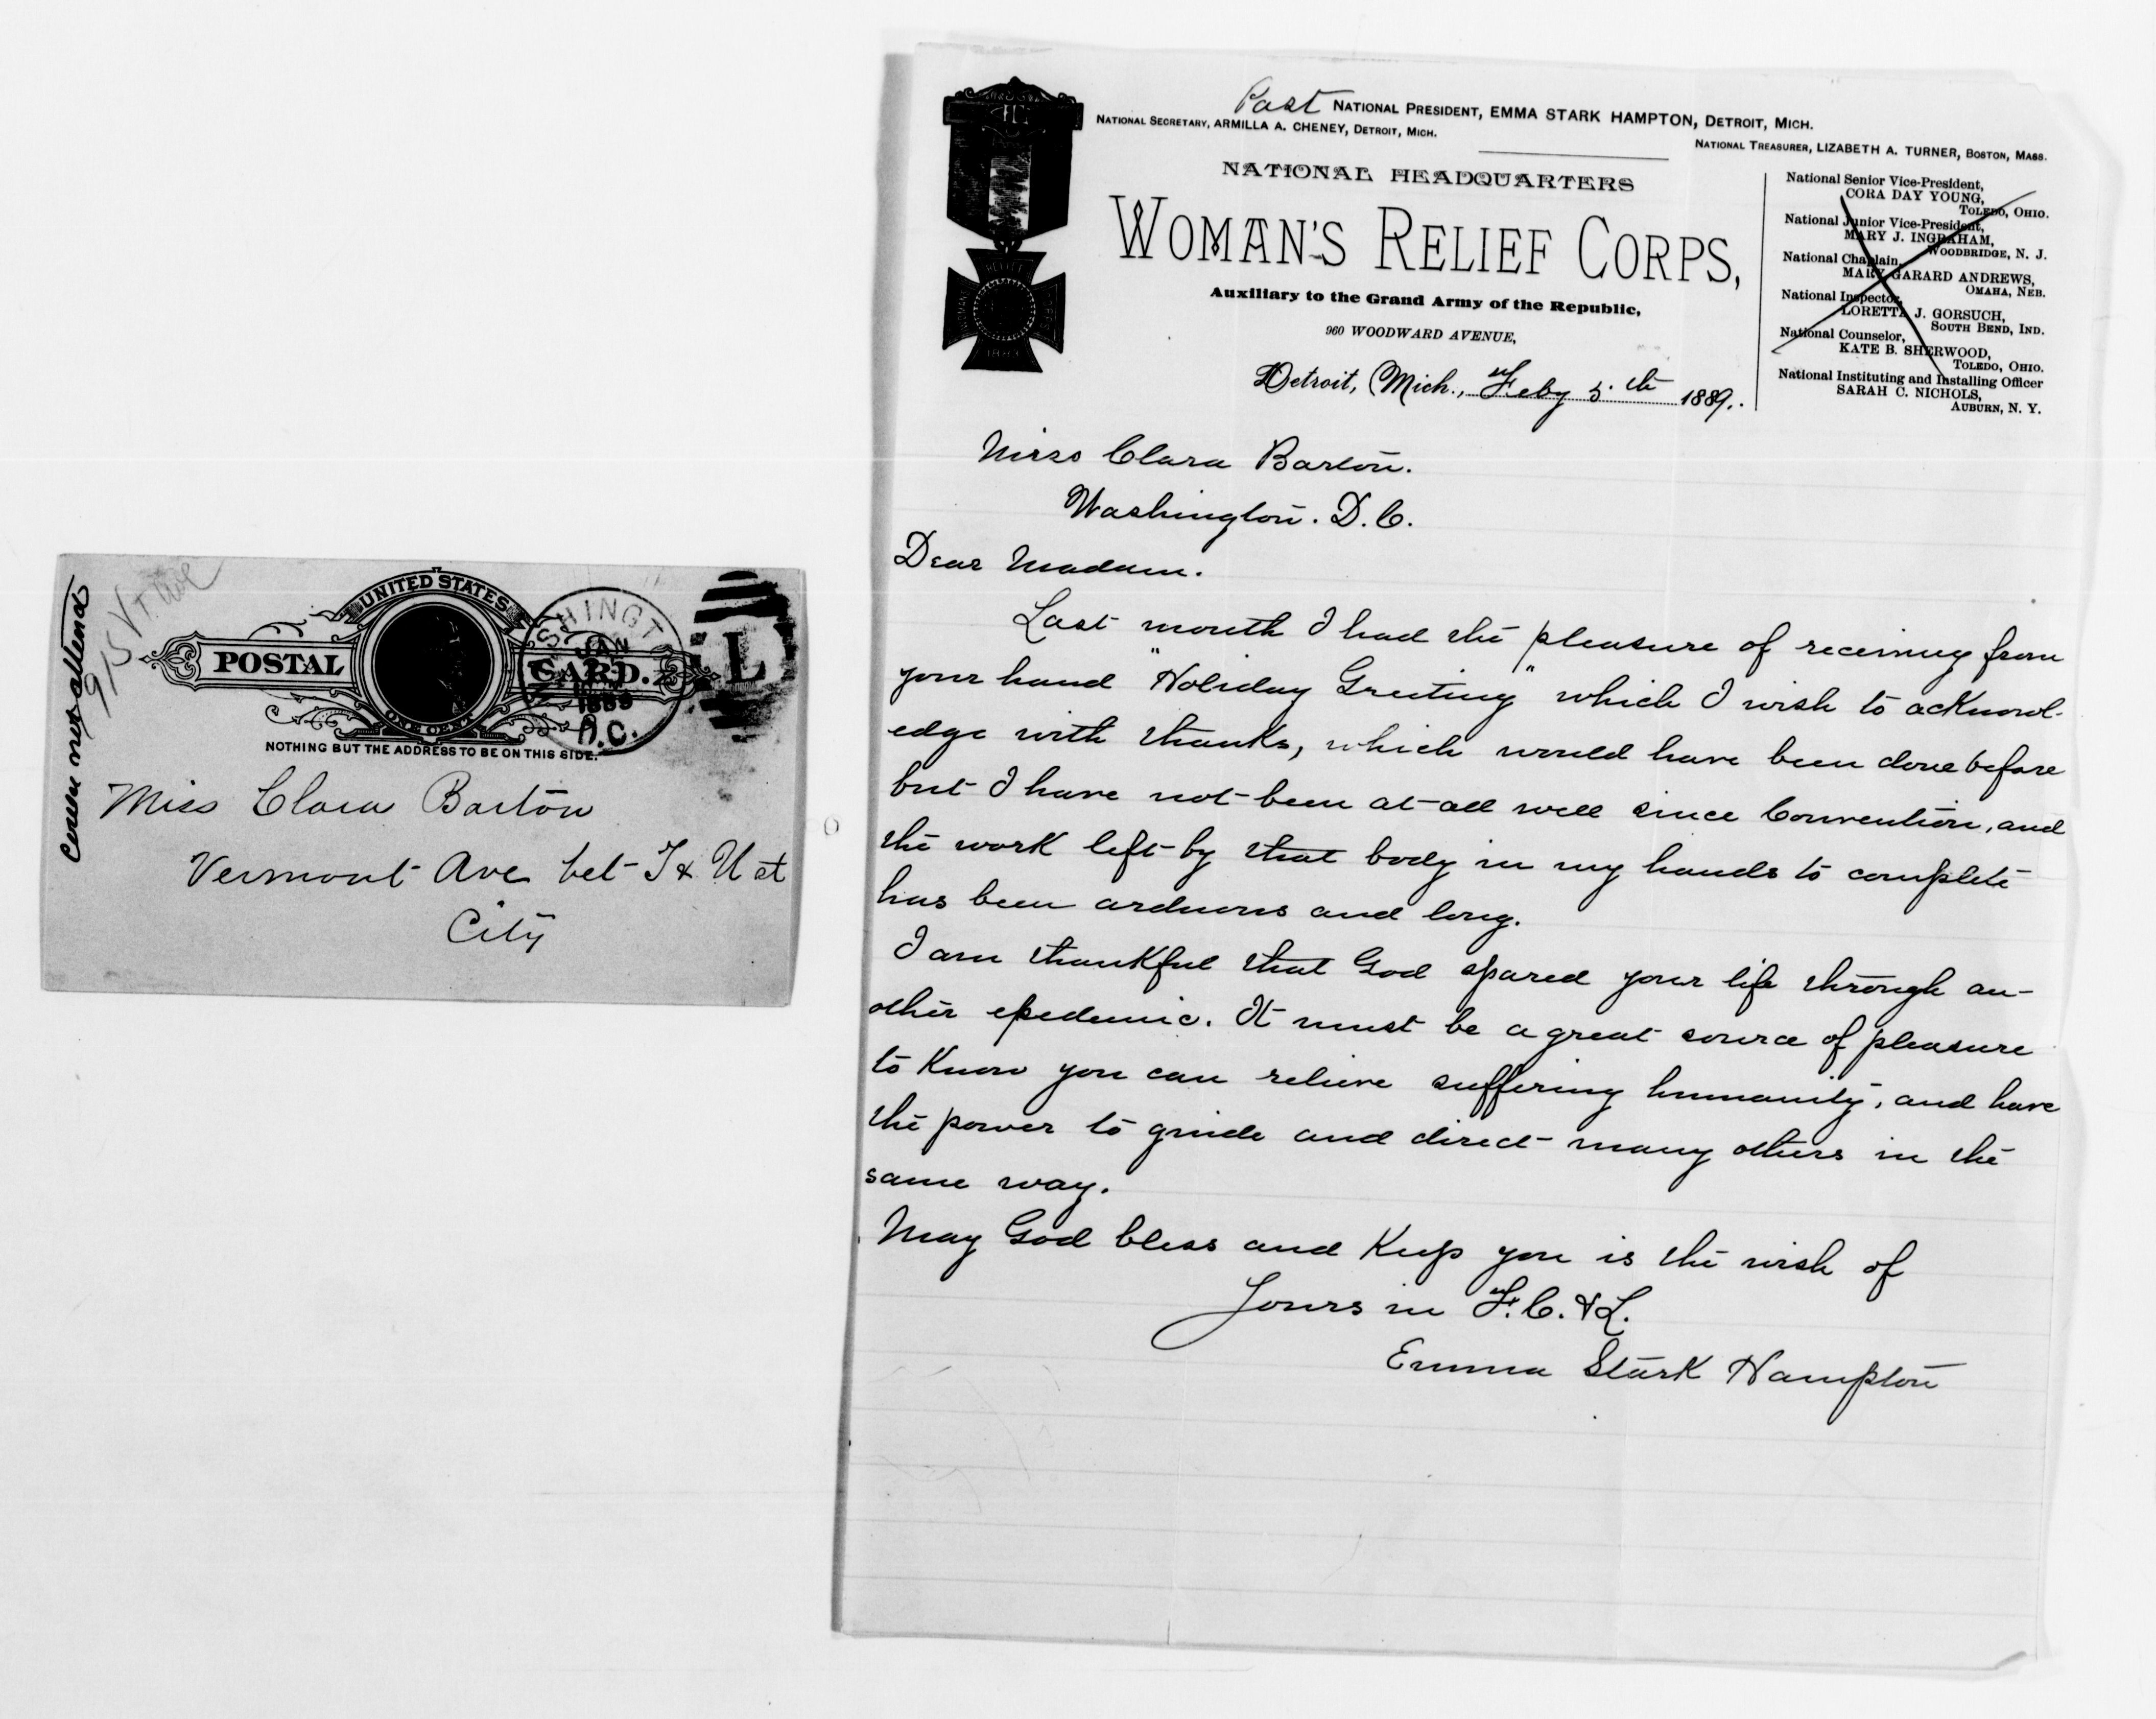 915 Vt. Ave
UNITED STATES
POSTAL CARD.
ONE CENT
NOTHING BUT THE ADDRESS TO BE ON THIS SIDE.
WASHINGT
JAN
1889
D.C.
L
not attend
Miss Clara Barton
Vermont Ave bet T & U st
City
Past NATIONAL PRESIDENT, EMMA STARK HAMPTON, DETROIT, MICH.
NATIONAL SECRETARY, ARMILLA A. CHENEY, DETROIT, MICH.
NATIONAL TREASURER, LIZABETH A. TURNER, BOSTON, MASS.
NATIONAL HEADQUARTERS
WOMAN'S RELIEF CORPS,
Auxiliary to the Grand Army of the Republic,
960 WOODWARD AVENUE,
National Senior Vice-President,
CORA DAY YOUNG,
TOLEDO, OHIO.
National Junior Vice-President,
MARY J. INGRAHAM,
WOODBRIDGE, N. J.
National Chaplain,
MARY GARARD ANDREWS,
OMAHA, NEB.
National Inspector,
LORETTA J. GORSUCH,
SOUTH BEND, IND.
National Counselor,
KATE B. SHERWOOD,
TOLEDO, OHIO.
National Instituting and Installing Officer
SARAH C. NICHOLS,
AUBURN, N. Y.
WOMANS RELIEF CORPS
1883
Detroit, Mich., Feby 5th 1889.
Miss Clara Barton.
Washington. D.C.
Dear Madam.
Last month I had the pleasure of receiving from
your hand "Holiday Greeting" which I wish to acknowl-
edge with thanks, which would have been done before
but I have not been at all well since Convention, and
the work left by that body in my hands to complete
has been arduous and long.
I am thankful that God spared your life through an-
other epedemic. It must be a great source of pleasure
to know you can relieve suffering humanity, and have
the power to guide and direct many others in the
same way.
May God bless and keep you is the wish of
Yours in F. C. & L.
Emma Stark Hampton